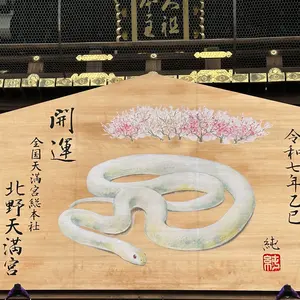 令和七年乙巳
純
開運
全国天満宮総本社
北野天満宮